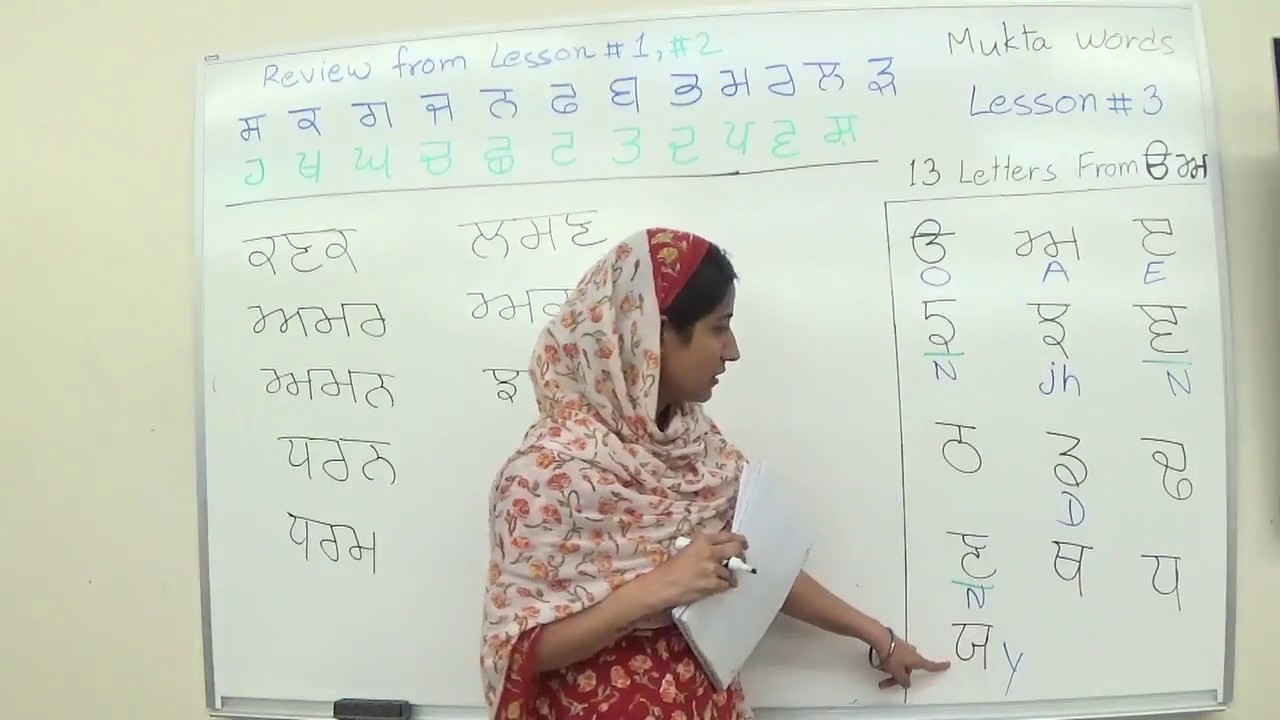 Review from Lesson #1, #2
ਸ ਕ ਗ ਜ ਨ ਫ ਬ ਭ ਮ ਰ ਲ ੜ
ਹ ਖ ਘ ਚ ਛ ਟ ਤ ਦ ਪ ਵ ਸ਼
Mukta Words
Lesson #3
13 Letters From ੳ ਅ
ਕਣਕ ਲਸਣ
ਅਮਰ
ਅਮਨ
ਧਰਨ
ਧਰਮ
ੳ ਅ ੲ
O A E
ਙ ਝ ਞ
N jh N
ਠ ਡ ਢ
D
ਣ ਥ ਧ
N
ਯ y